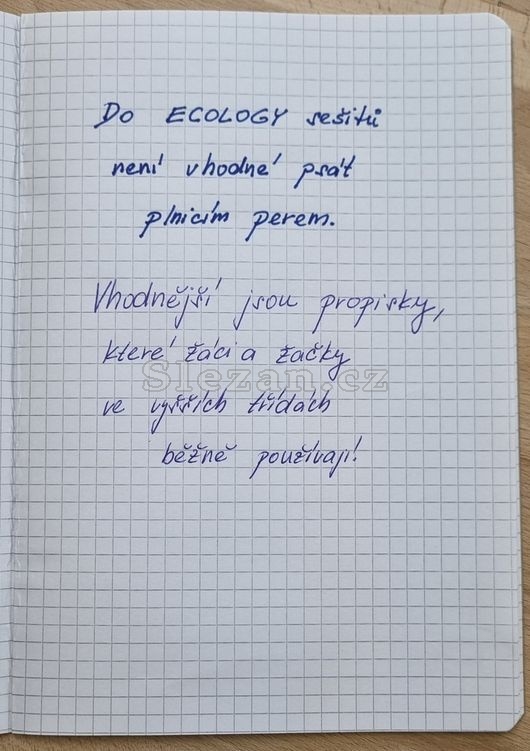 Do ECOLOGY sešitů
není vhodné psát
plnicím perem.
Vhodnější jsou propisky,
které žáci a žačky
Slezan.cz
ve vyšších třídách
běžně používají!